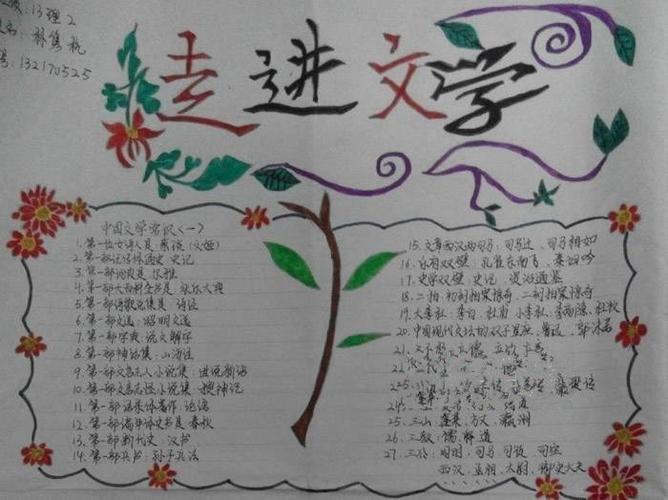 级：13理2
号：132170525
走进文学
中国文学常识<一>
1.第一位女诗人是：蔡琰（文姬）
2.第一部纪传体通史：史记
3.第一部词典是：尔雅
4.第一部大百科全书是：永乐大典
5.第一部诗歌总集是：诗经
6.第一部文选：昭明文选
7.第一部字典：说文解字
8.第一部神话集：山海经
9.第一部文言志人小说集：世说新语
10.第一部文言志怪小说集：搜神记
11.第一部语录体著作：论语
12.第一部编年体史书是：春秋
13.第一部断代史：汉书
14.第一部兵书：孙子兵法
15.文章西汉两司马：司马迁、司马相如
16.乐府双壁：孔雀东南飞、秦妇吟
17.史学双壁：史记、资治通鉴
18.二拍：初刻拍案惊奇、二刻拍案惊奇
19.大李杜：李白、杜甫 小李杜：李商隐、杜牧
20.中国现代文坛的双子星座：鲁迅、郭沫若
21.
25.三山：蓬莱、方丈、瀛洲
26.三教：儒、释、道
27.三公：周：司马、司徒、司空
西汉：丞相、太尉、御史大夫